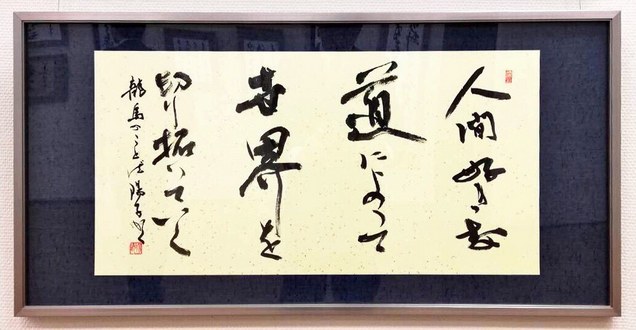 人間好きな
道によって
世界を
切り拓いていく
龍馬の